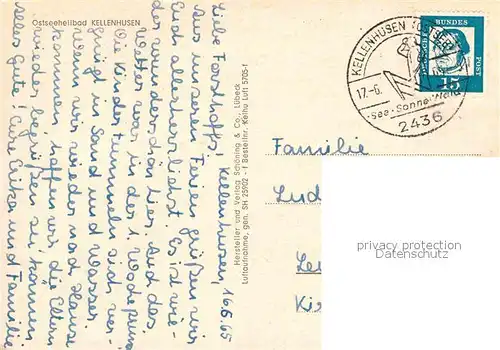 Ostseeheilbad KELLENHUSEN
Liebe Forsthoffs! Kellenhusen, 16.6.65
Aus unseren Ferien grüßen wir
Euch allerherzlichst. Es ist wie-
der wunderschön hier. Auch das
Wetter war in der 1. Woche prima.
Die Kinder tummeln sich ver-
gnügt in Sand und Wasser.
Wenn wir wieder nach Hause
kommen, hoffen wir, die Eltern
wieder begrüßen zu können.
Alles Gute! Eure Erika und Familie
Hersteller und Verlag Schöning & Co., Lübeck
Luftaufnahme, gen. SH 25902 - f Bestellnr. Kelhu Luft 5705-f
KELLENHUSEN
17.-6.
See·Sonne·Wald
2436
DEUTSCHE BUNDESPOST
15
Familie
Lud
Le
Kie
privacy protection
Datenschutz